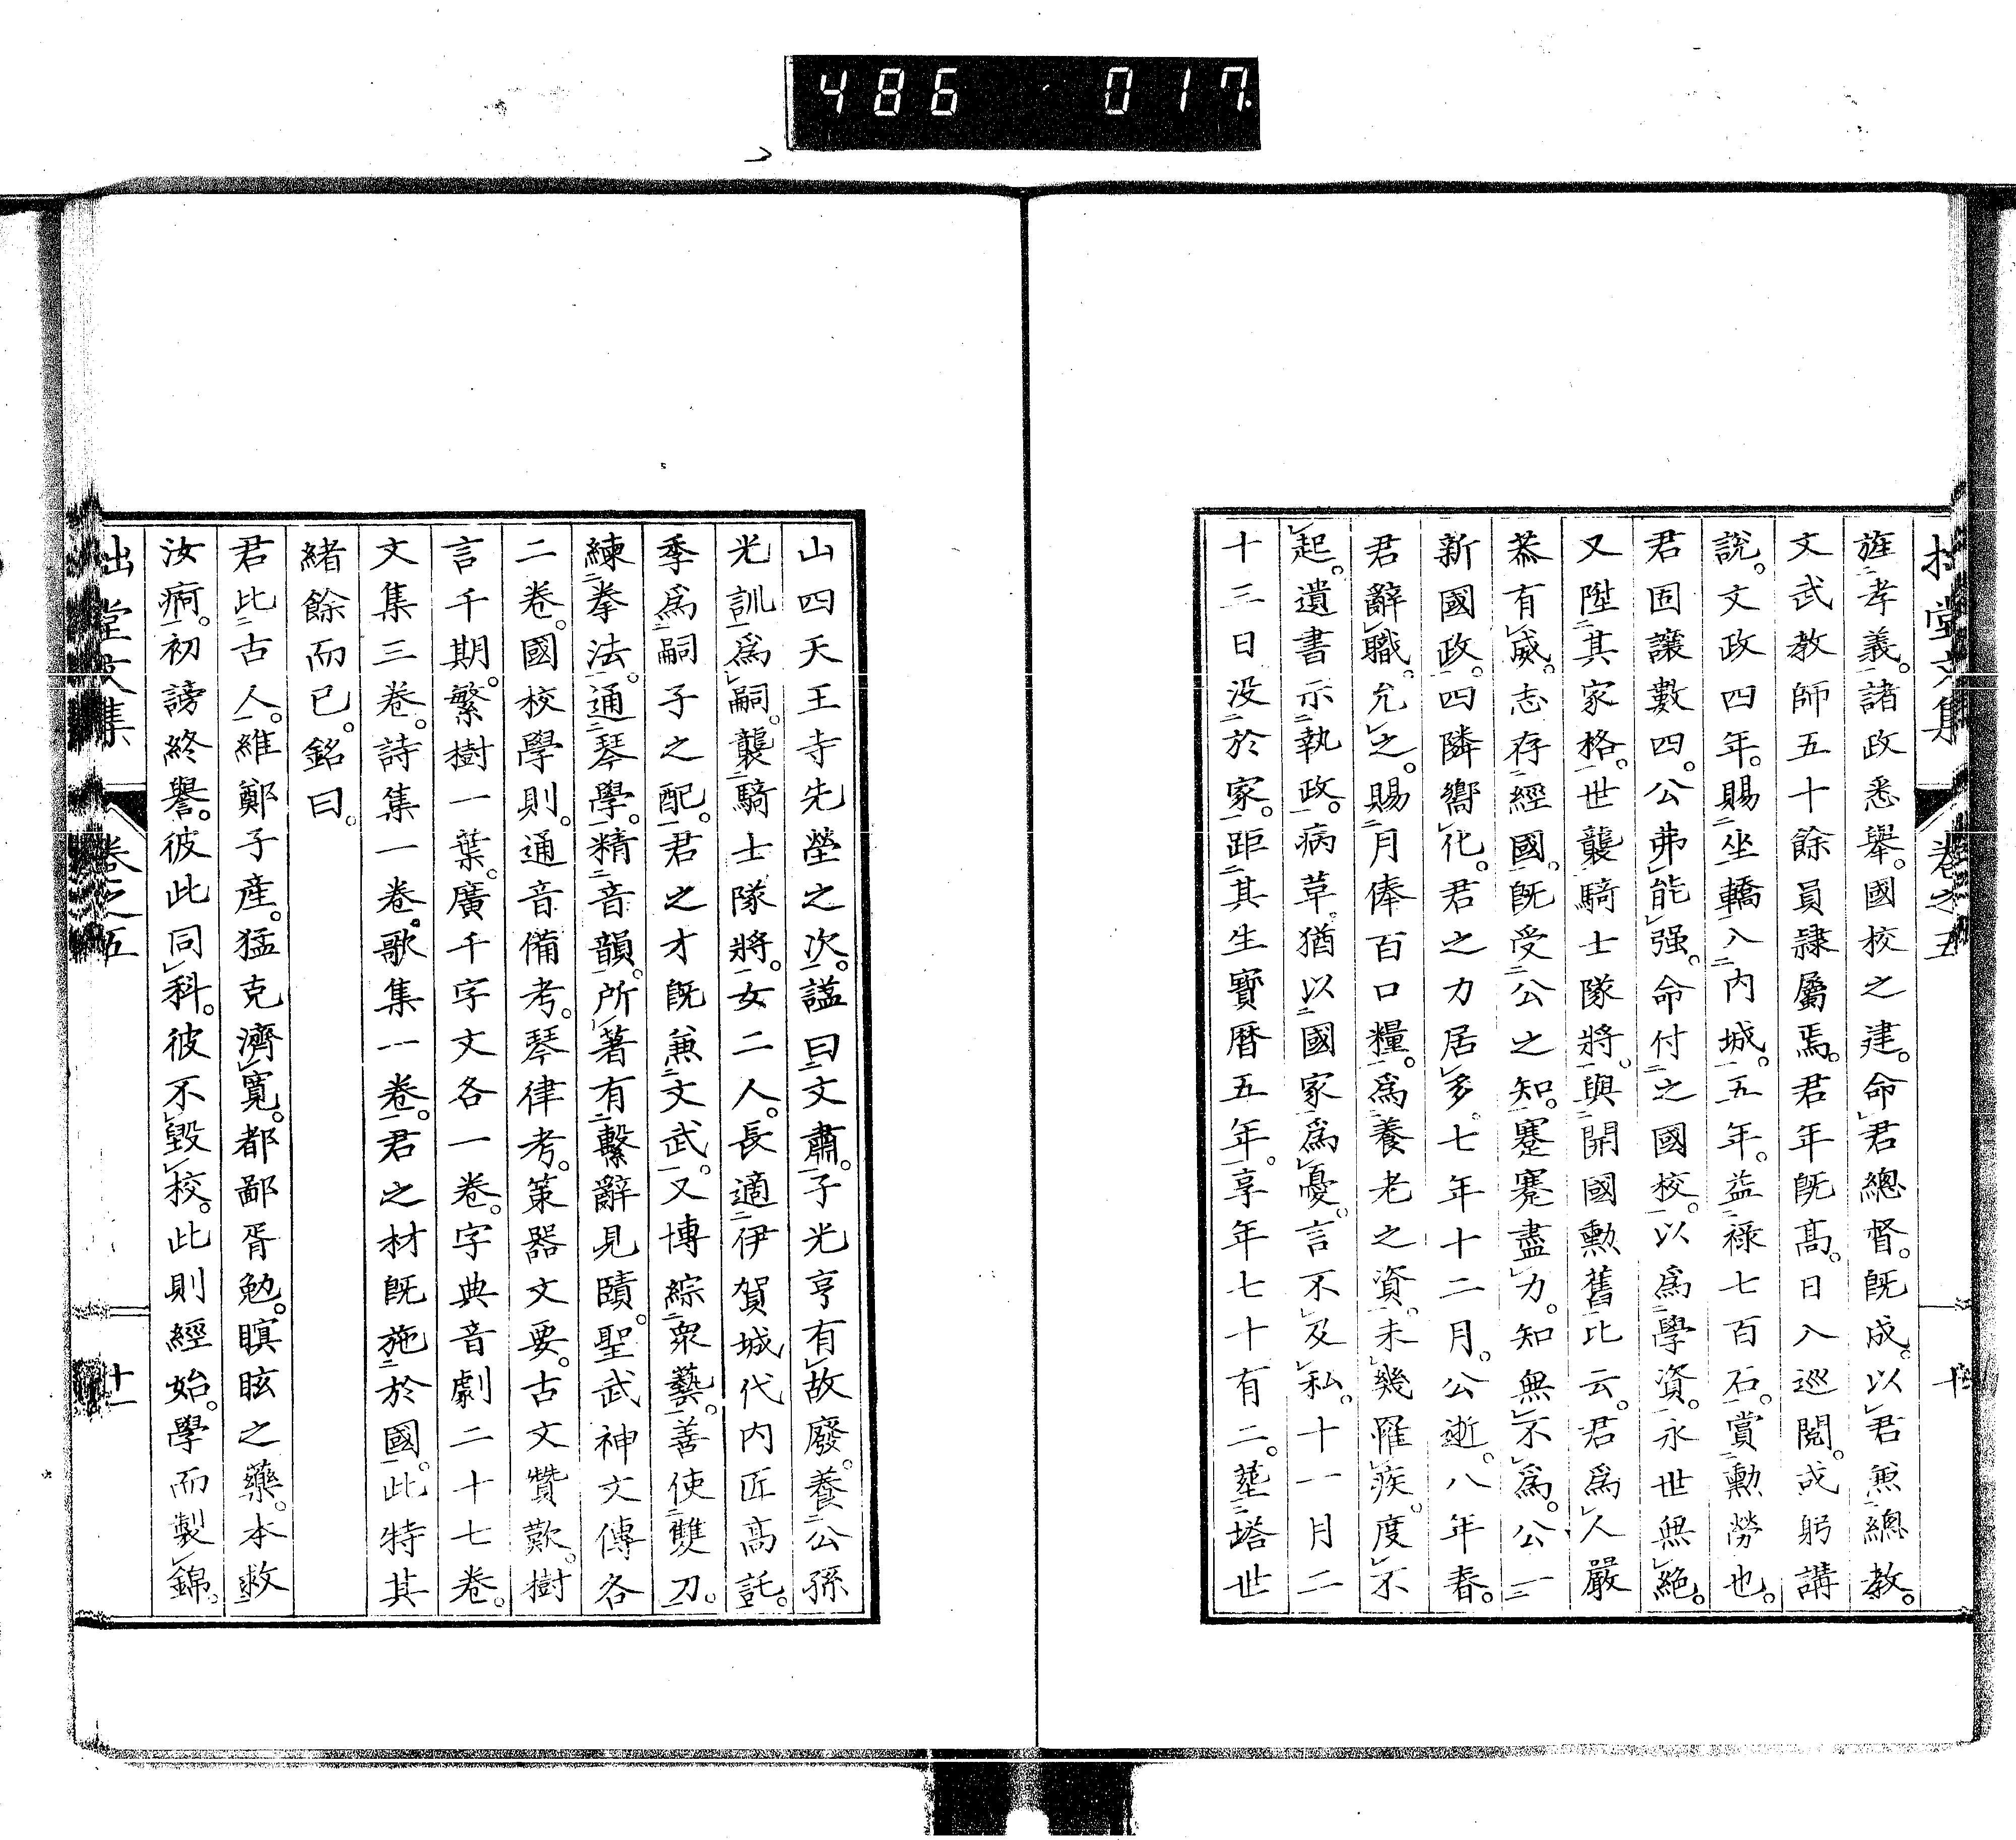 486 017
旌孝義。諸政悉擧。國校之建。命君總督。旣成。以君兼總教。
文武教師五十餘員隷屬焉。君年旣高。日入巡閲。或躬講
說。文政四年。賜坐轎入內城。五年。益祿七百石。賞勳勞也。
君固讓數四。公弗能强。命付之國校。以爲學資。永世無絶。
又陞其家格。世襲騎士隊將。與開國勳舊比云。君爲人嚴
恭有威。志存經國。旣受公之知。蹇蹇盡力。知無不爲。公一
新國政。四隣嚮化。君之力居多。七年十二月。公逝。八年春。
君辭職。允之。賜月俸百口糧。爲養老之資。未幾罹疾。度不
起。遺書示執政。病革。猶以國家爲憂。言不及私。十一月二
十三日没於家。距其生寶曆五年。享年七十有二。塟塔世
山四天王寺先塋之次。諡曰文肅。子光亨有故廢。養公孫
光訓爲嗣。襲騎士隊將。女二人。長適伊賀城代內匠高託。
季爲嗣子之配。君之才旣兼文武。又博綜衆藝。善使雙刀。
練拳法。通琴學。精音韻。所著有繫辭見賾。聖武神文傳各
二卷。國校學則。通音備考。琴律考。策器文要。古文贊歎。樹
言千期。繁樹一葉。廣千字文各一卷。字典音劇二十七卷。
文集三卷。詩集一卷。歌集一卷。君之材旣施於國。此特其
緒餘而已。銘曰。
君比古人。維鄭子產。猛克濟寬。都鄙胥勉。瞑眩之藥。本救
汝痾。初謗終譽。彼此同科。彼不毀校。此則經始。學而製錦。
堂文集 卷之五 十一